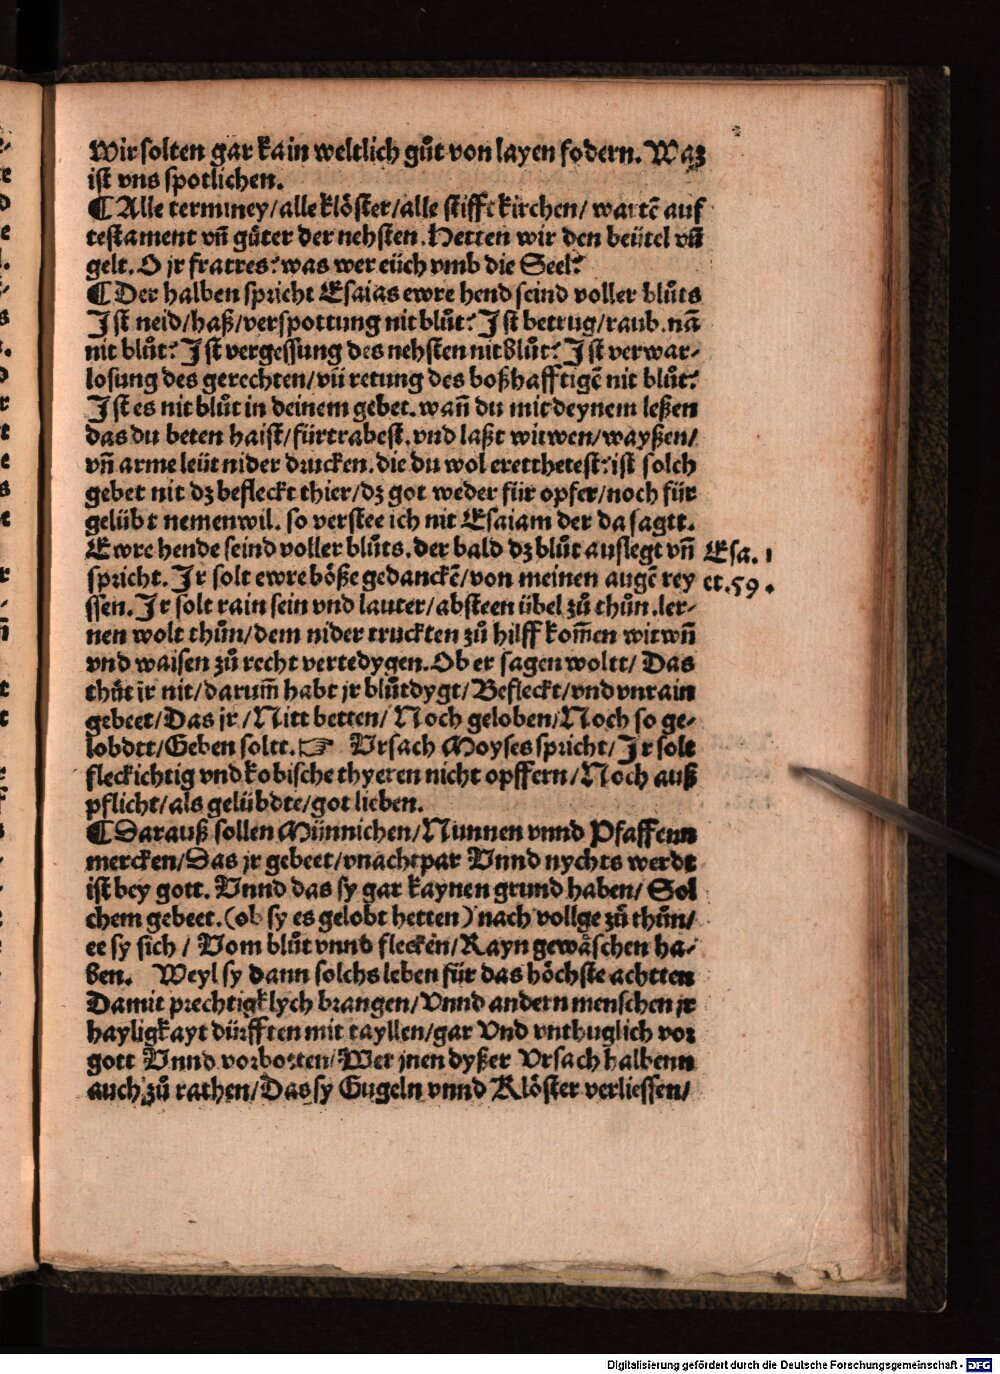 Wir solten gar kain weltlich gůt von layen fodern. Waz
ist vns spotlichen.
¶ Alle terminey/alle klöster/alle stifft kirchen/ wartē auf
testament vñ gůter der nehsten. Hetten wir den beütel vñ
gelt. O jr fratres? was wer eüch vmb die Seel?
¶ Der halben spricht Esaias ewre hend seind voller blůts
Ist neid/haß/verspottung nit blůt? Ist betrug/raub. nā
nit blůt? Ist vergessung des nehsten nit blůt? Ist verwar-
losung des gerechten/vñ retung des boßhafftigē nit blůt?
Ist es nit blůt in deinem gebet. wañ du mit deynem leßen
das du beten haist/fürtrabest. vnd laßt witwen/wayßen/
vñ arme leüt nider drucken. die du wol eretthetest? ist solch
gebet nit dz befleckt thier/dz got weder für opfer/noch für
gelübt nemen wil. so verstee ich nit Esaiam der da sagtt.
Ewre hende seind voller blůts. der bald dz blůt auslegt vñ
Esa. 1
spricht. Ir solt ewre böße gedanckē/von meinen augē rey
et. 59.
ssen. Ir solt rain sein vnd lauter/absteen übel zů thůn. ler-
nen wolt thůn/dem nider truckten zů hilff kom̄en witwñ
vnd waisen zů recht vertedygen. Ob er sagen woltt/ Das
thůt ir nit/darum̄ habt jr blůtdygt/Befleckt/vnd vnrain
gebeet/Das jr/Nitt betten/ Noch geloben/Noch so ge-
lobdtt/Geben soltt. ☞ Vrsach Moyses spricht/Ir solt
fleckichtig vnd kobische thyeren nicht opffern/Noch auß
pflicht/als gelübdte/got lieben.
¶ Darauß sollen Münnichen/Nunnen vnnd Pfaffenn
mercken/Das jr gebeet/vnachtpar Vnnd nychts werdt
ist bey gott. Vnnd das sy gar kaynen grund haben/ Sol
chem gebeet. (ob sy es gelobt hetten) nach vollge zů thůn/
ee sy sich/ Vom blůt vnnd flecken/Rayn gewäschen ha-
ben. Weyl sy dann solchs leben für das höchste achtten
Damit prechtigklych brangen/Vnnd andern menschen jr
hayligkayt dürfften mit tayllen/gar Vnd vnthuglich vor
gott Vnnd vorbotten/Wer jnen dyßer Vrsach halbenn
auch zů rathen/Das sy Gugeln vnnd Klöster verliessen/
Digitalisierung gefördert durch die Deutsche Forschungsgemeinschaft - DFG